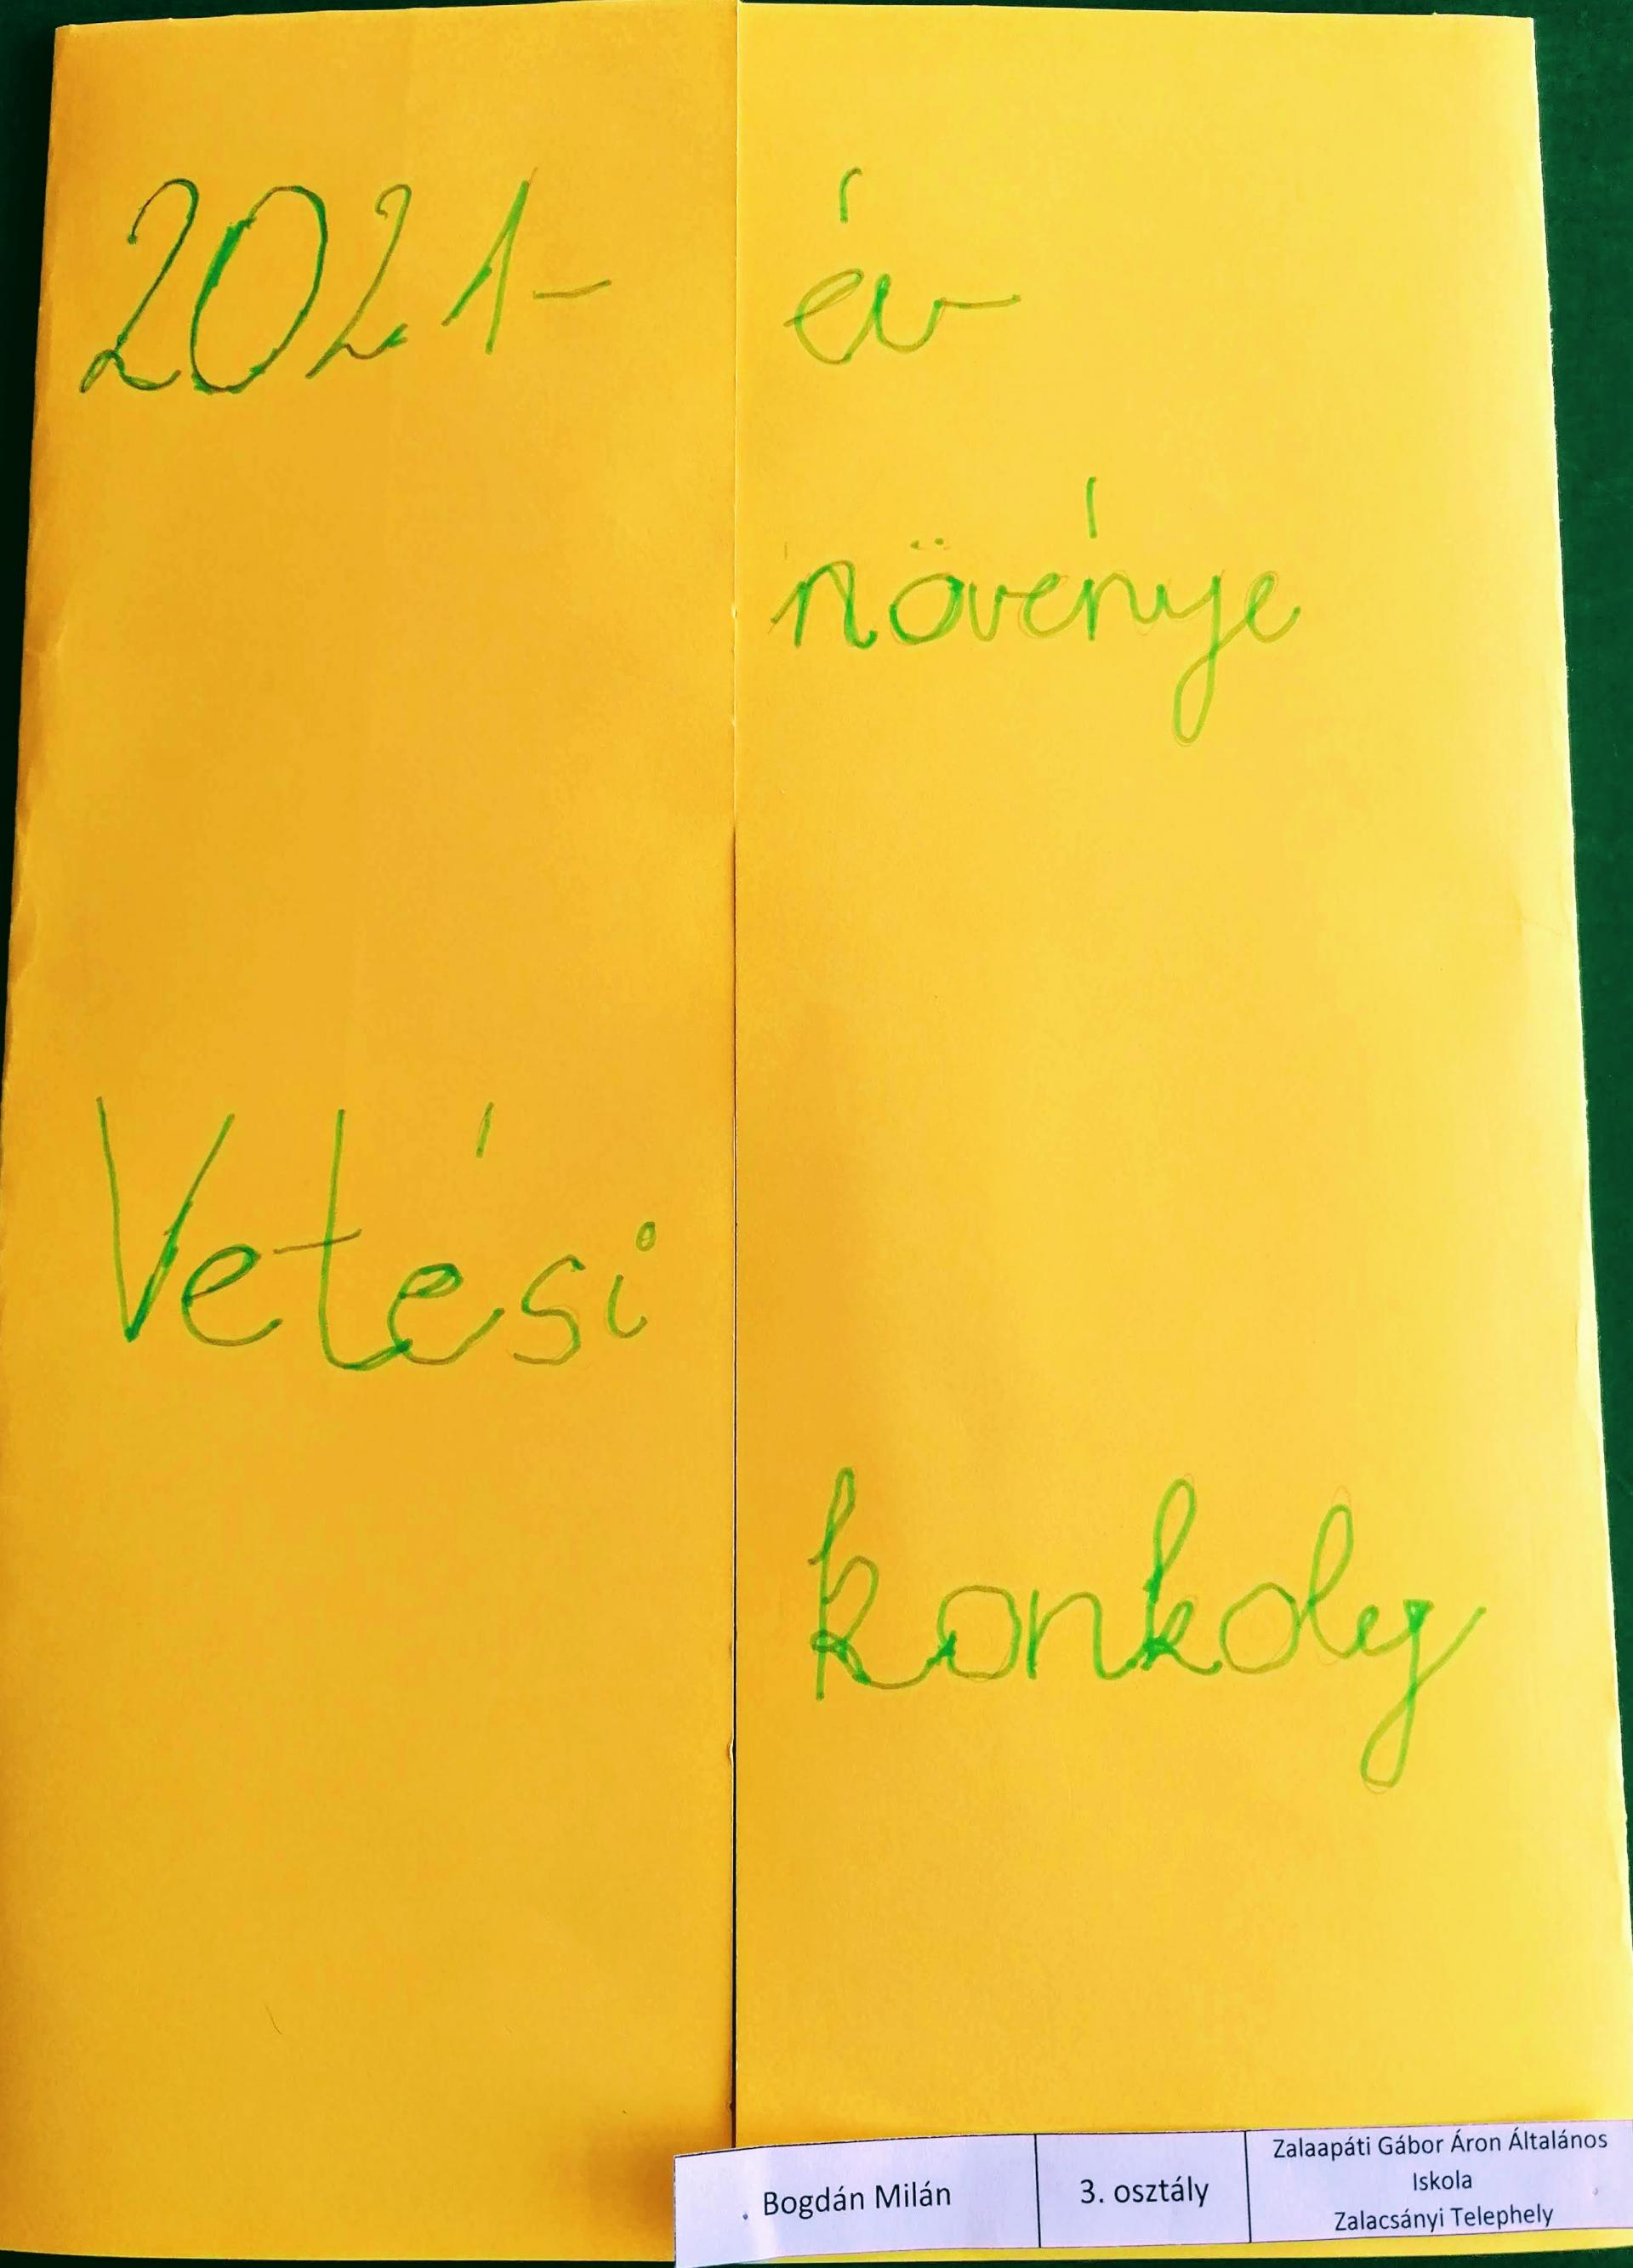 2021- év
növénye
Vetési
konkoly
Bogdán Milán
3. osztály
Zalaapáti Gábor Áron Általános
Iskola
Zalacsányi Telephely